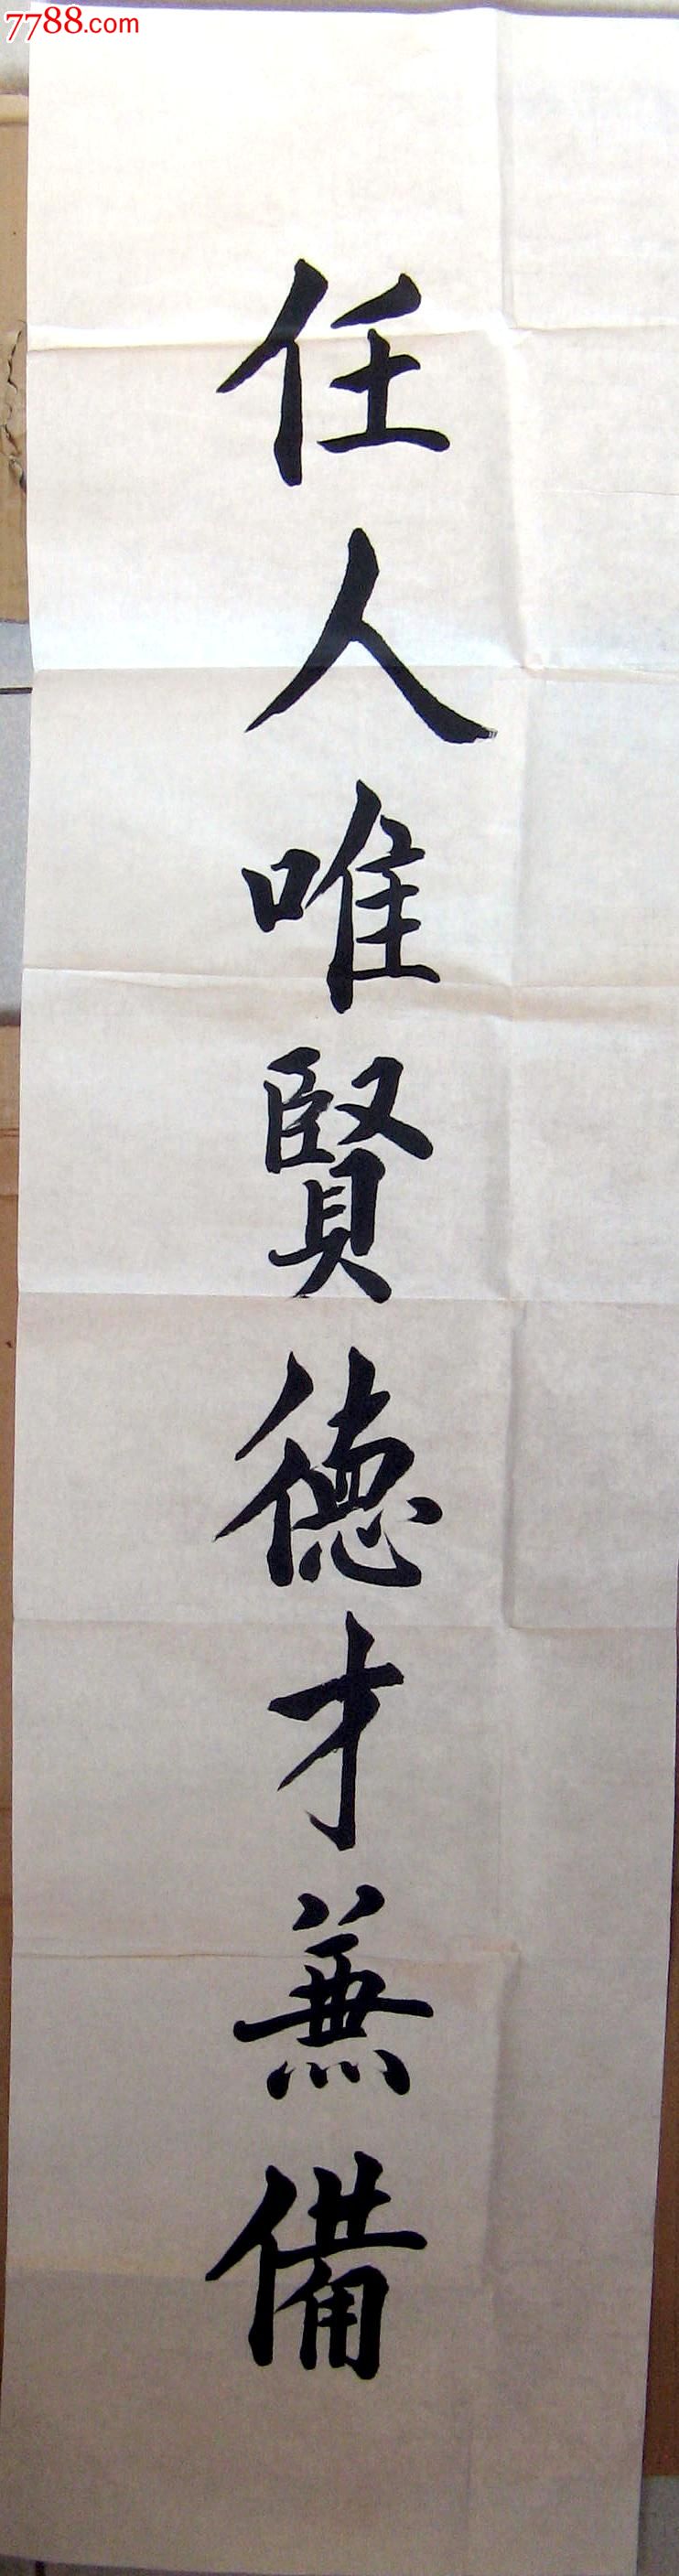 7788.com
任人唯賢德才兼備